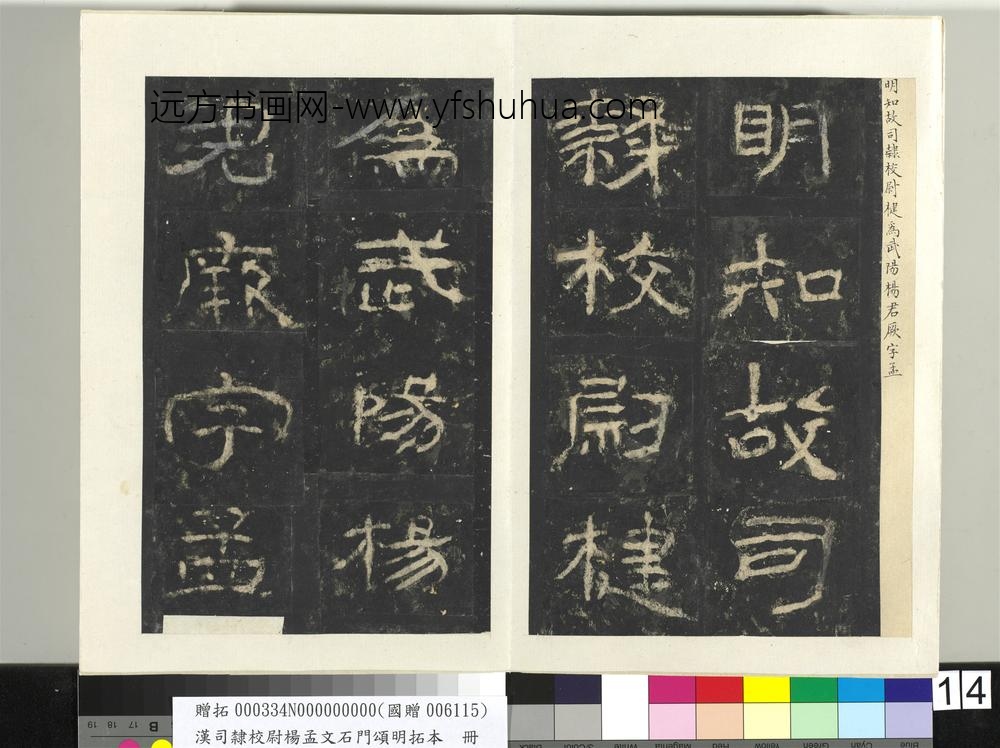 远方书画网-www.yfshuhua.com
明知故司隸校尉楗爲武陽楊君厥字孟
明知故司
隸校尉楗
爲武陽楊
君厥字孟
14
贈拓 000334N000000000(國贈 006115)
漢司隸校尉楊孟文石門頌明拓本 冊
19 18 17 16 B
Black 3/Color White Magenta Red Yellow Green Cyan Blue